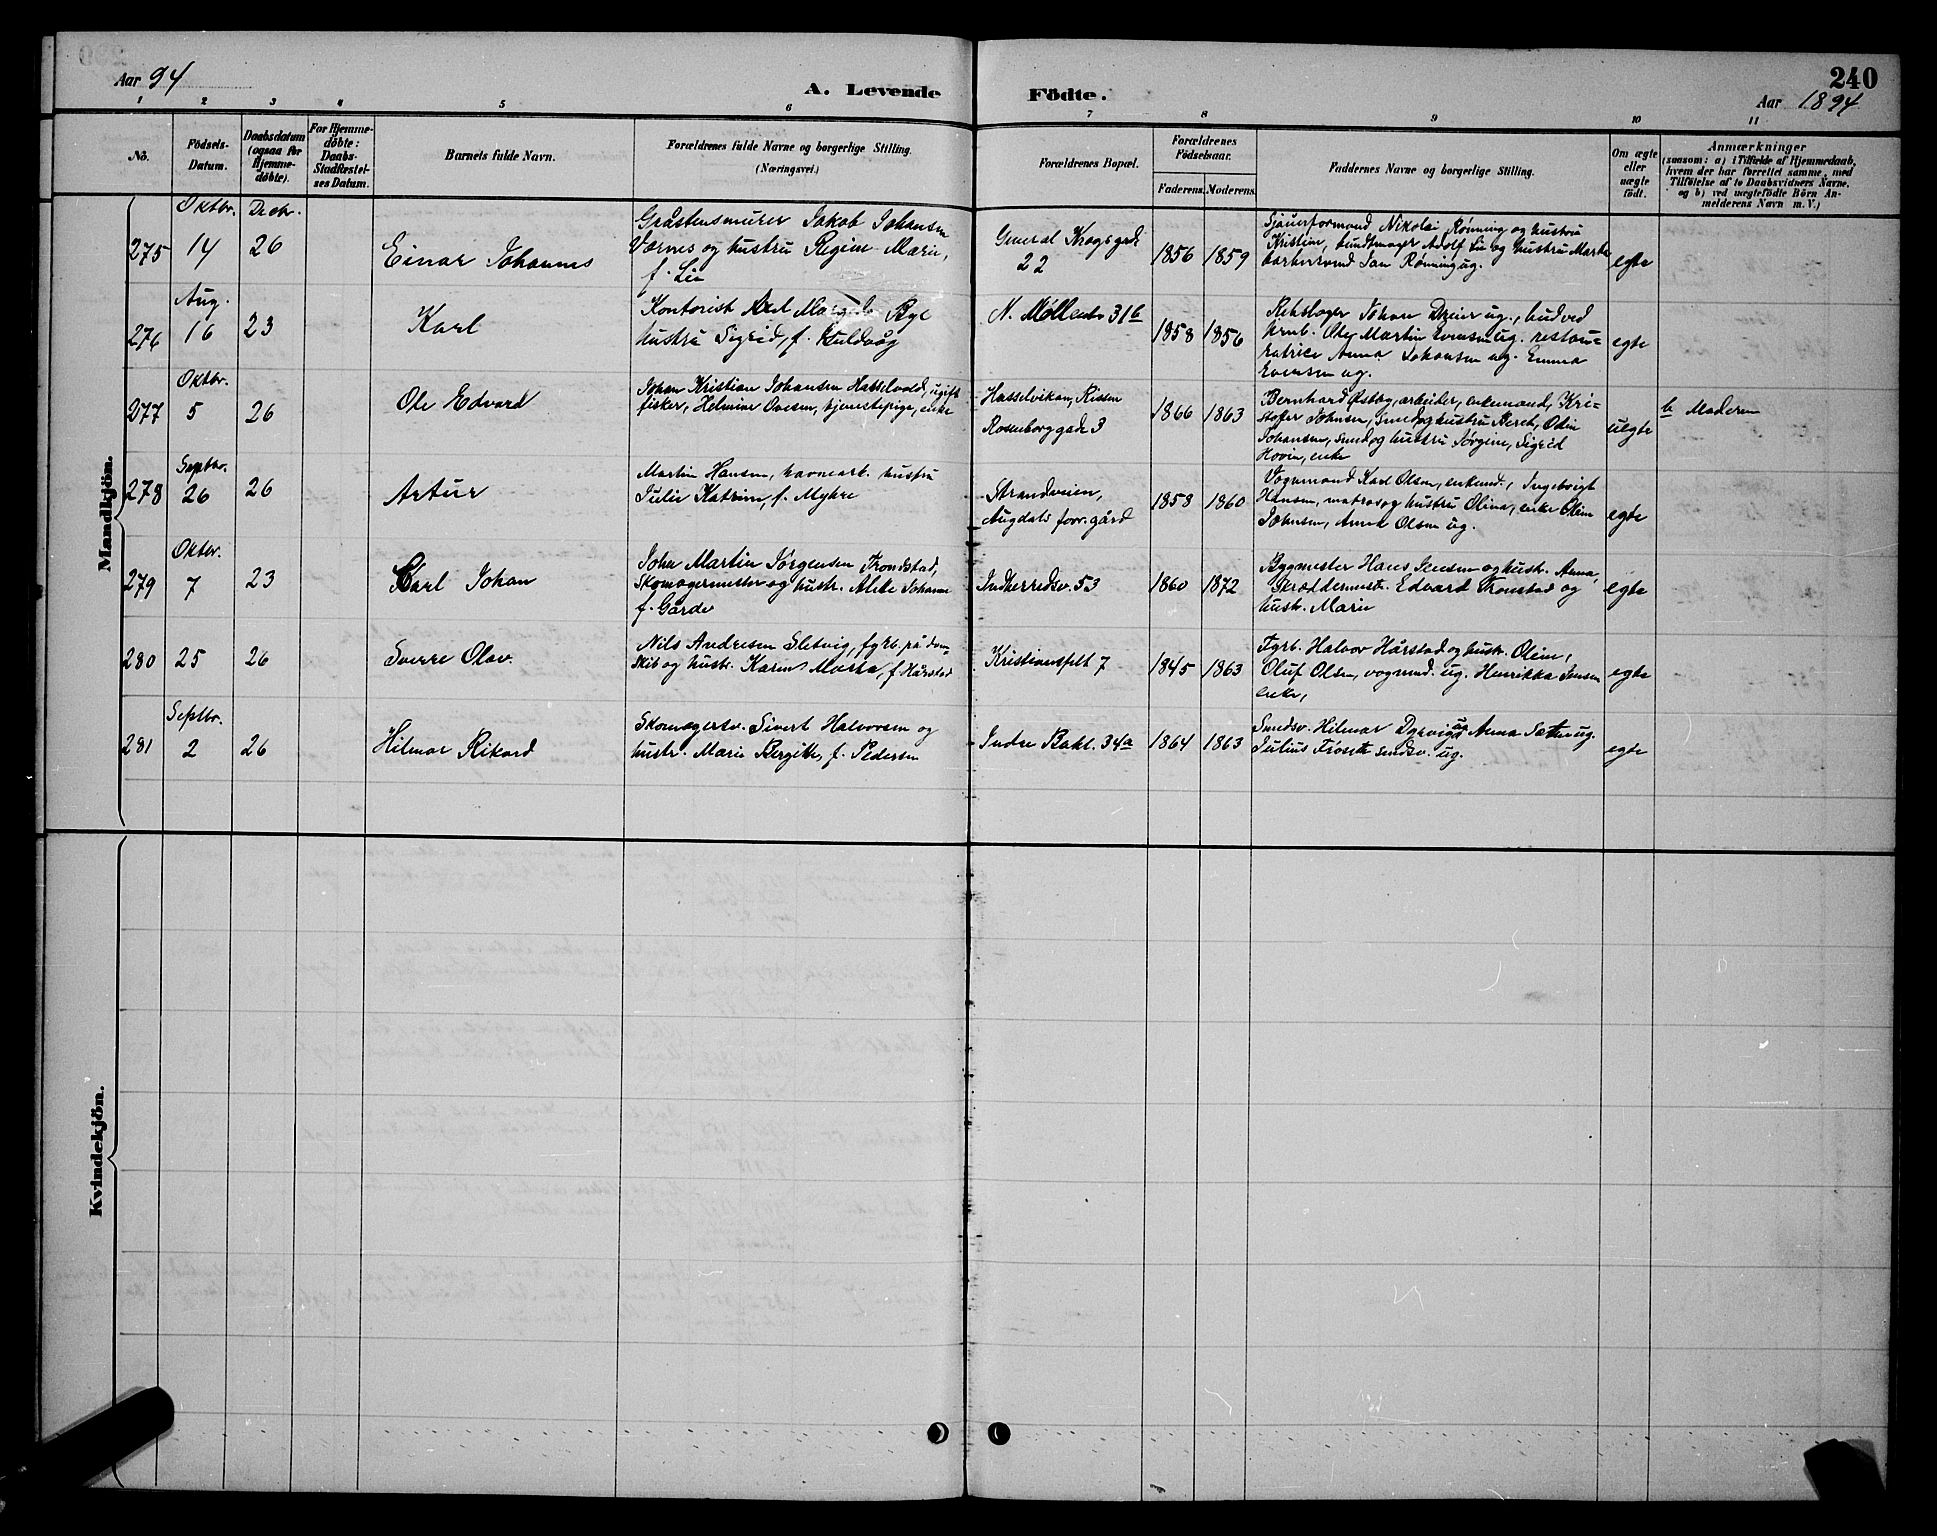 Aar 94
A. Levende Födte.
240
Aar 1894
1 2 3 4 5 6 7 8 9 10 11
No.
Födsels-Datum.
Daabsdatum (ogsaa for Hjemme-döbte).
For Hjemme-döbte: Daabs-Stadfæstel-ses Datum.
Barnets fulde Navn.
Forældrenes fulde Navne og borgerlige Stilling. (Næringsvei.)
Forældrenes Bopæl.
Forældrenes Födselsaar.
Faderens. Moderens.
Faddernes Navne og borgerlige Stilling.
Om ægte eller uægte födt.
Anmærkninger
(saasom: a) i Tilfælde af Hjemmedaab,
hvem der har forrettet samme, med
Tilföielse af to Daabsvidners Navne,
og b) ved uægtefödte Börn An-
melderens Navn m. V.)
Mandkjön.
Oktbr. Decbr.
275 14 26 Einar Johannes
Gråstensmurer Jakob Johansen
Værnes og hustru Regine Marie,
f. Lie
General Krogsgade
22
1856 1859
Sjauerformand Nikolai Rønning og hustru
Kristine, bundtmager Adolf Lie og hustru Marta
Jan Rønning ug.
egte
Aug.
276 16 23 Karl
Kontorist Bye
hustru Sigrid, f. Kuldvåg
N. Møllenb. 31b
1858 1856
Rebslager Johan Dreier ug.,
Martin Evensen ug. restau-
ratrice Anna Johansen ug. Emma
Evensen ug.
egte
Oktbr.
277 5 26 Ole Edvard
Johan Kristian Johansen Hasselvold, ugift
fisker, Helmine Ovesen, tjenestepige, enke
Hasselviken, Rissen
Rosenborggade 3
1866 1863
Bernhard Østby, arbeider, enkemand, Kri-
stofer Johnsen, smed og hustru Beret, Odin
Johansen, smed og hustru Jørgine, Sigrid
Hovin, enke
uegte
b Moderen
Septbr.
278 26 26 Artur
Martin Hansen, havnearb. hustru
Julie Katrine, f. Myhre
Strandveien,
Augdals forr. gård
1858 1860
Vognmand Karl Olsen, enkemd., Ingebrigt
Hansen, matros og hustru Olina, enke Oline
Johnsen, Anna Olsen ug.
egte
Oktbr.
279 7 23 Karl Johan
John Martin Jørgensen Trondstad,
Skomagermester og hustr. Alette Johanne
f. Garde
Indherredsv. 53
1860 1872
Bygmester Hans Jensen og hustr. Anna,
Skræddermestr. Edvard Tronstad og
hustr. Marie
egte
280 25 26 Sverre Olav.
Nils Andresen Sletvig, fyrb. på dam-
skib og hustr. Karen Marta, f. Hårstad
Kristiansfelt 7
1845 1863
Fyrb. Halvor Hårstad og hustr. Oline,
Oluf Olsen, vognmd. ug. Henrikka Jensen
enke,
egte
Septbr.
281 2 26 Hilmar Rikard
Skomagersv. Sivert Halvorsen og
hustr. Marie Bergitte, f. Pedersen
Indre Bakl. 34a
1864 1863
Smedsv. Hilmar Dyrvig ug. Anna Sæther ug.
Julius Frøseth smedsv. ug.
egte
Kvindekjön.